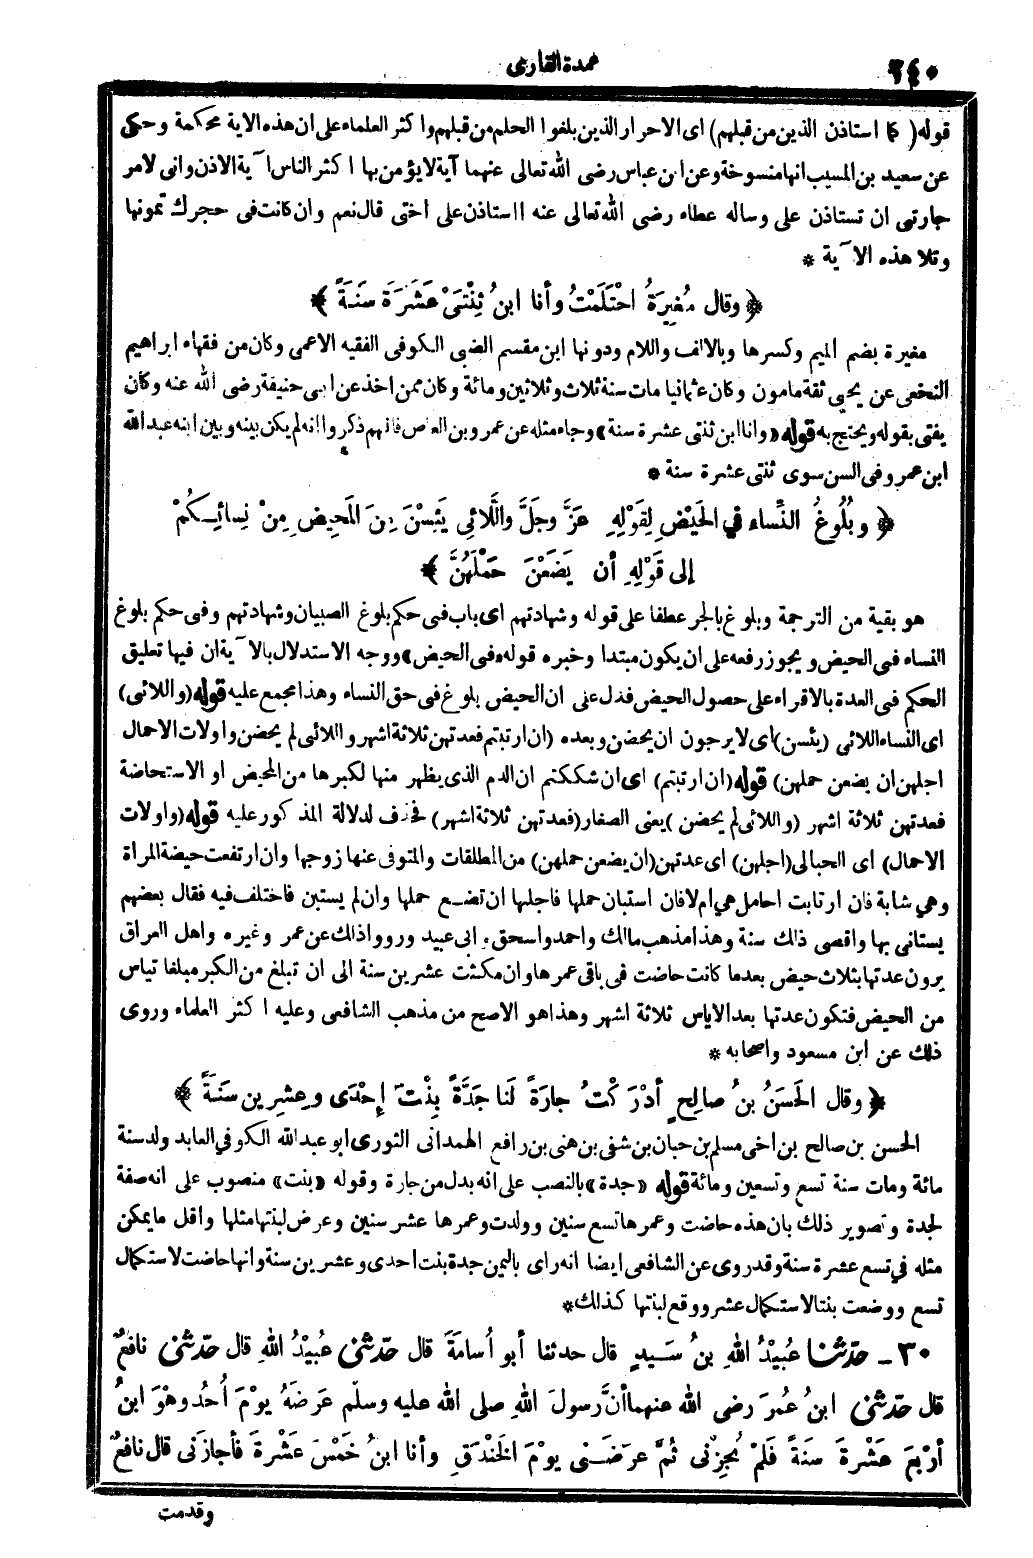 ٢٤٠
عمدة القارى
قوله (كما استاذن الذين من قبلهم) اى الاحرار الذين بلغوا الحلم من قبلهم واكثر العلماء على ان هذه الاية محكمة وحكى
عن سعيد بن المسيب انها منسوخة وعن ابن عباس رضى الله تعالى عنهما آية لا يؤمن بها اكثر الناس آية الاذن وانى لامر
جارتى ان تستاذن على وساله عطاء رضى الله تعالى عنه ااستاذن على اختى قال نعم وان كانت فى حجرك تمونها
وتلا هذه الآية *
﴿ وقال مُغِيرَةُ احْتَلَمْتُ وأنا ابنُ ثِنْتَىْ عَشَرَةَ سَنَةً ﴾
مغيرة بضم الميم وكسرها وبالالف واللام ودونها ابن مقسم الضبى الكوفى الفقيه الاعمى وكان من فقهاء ابراهيم
النخعى عن يحيى ثقة مامون وكان عثمانيا مات سنة ثلاث وثلاثين ومائة وكان ممن اخذ عن ابى حنيفة رضى الله عنه وكان
يفتى بقوله ويحتج به قوله «وانا ابن ثنتى عشرة سنة» وجاء مثله عن عمرو بن العاص فانهم ذكروا انه لم يكن بينه وبين ابنه عبد الله
ابن عمرو فى السن سوى ثنتى عشرة سنة *
﴿ وبُلُوغُ النِّساء في الحَيْضِ لِقَوْلِهِ عَزَّ وجَلَّ واللَّائِى يَئِسْنَ مِنَ المَحِيضِ مِنْ نِسائِكُمْ
إلى قَوْلِهِ أن يَضَعْنَ حَمْلَهُنَّ ﴾
هو بقية من الترجمة وبلوغ بالجر عطفا على قوله وشهادتهم اى باب فى حكم بلوغ الصبيان وشهادتهم وفى حكم بلوغ
النساء فى الحيض ويجوز رفعه على ان يكون مبتدا وخبره قوله «فى الحيض» ووجه الاستدلال بالآية ان فيها تعليق
الحكم فى العدة بالاقراء على حصول الحيض فدل على ان الحيض بلوغ فى حق النساء وهذا مجمع عليه قوله (واللائى)
اى النساء اللائى (يئسن) اى لا يرجون ان يحضن وبعده (ان ارتبتم فعدتهن ثلاثة اشهر واللائى لم يحضن واولات الاحمال
اجلهن ان يضعن حملهن) قوله (ان ارتبتم) اى ان شككتم ان الدم الذى يظهر منها لكبرها من المحيض او الاستحاضة
فعدتهن ثلاثة اشهر (واللائى لم يحضن) يعنى الصغار (فعدتهن ثلاثة اشهر) فحذف لدلالة المذكور عليه قوله (واولات
الاحمال) اى الحبالى (اجلهن) اى عدتهن (ان يضعن حملهن) من المطلقات والمتوفى عنها زوجها وان ارتفعت حيضة المراة
وهى شابة فان ارتابت احامل هى ام لا فان استبان حملها فاجلها ان تضع حملها وان لم يستبن فاختلف فيه فقال بعضهم
يستانى بها واقصى ذلك سنة وهذا مذهب مالك واحمد واسحق وابى عبيد ورووا ذلك عن عمر وغيره واهل العراق
يرون عدتها بثلاث حيض بعدما كانت حاضت فى باقى عمرها وان مكثت عشرين سنة الى ان تبلغ من الكبر مبلغا تياس
من الحيض فتكون عدتها بعد الاياس ثلاثة اشهر وهذا هو الاصح من مذهب الشافعى وعليه اكثر العلماء وروى
ذلك عن ابن مسعود واصحابه *
﴿ وقال الحَسَنُ بنُ صالِحٍ أدْرَكْتُ جارَةً لَنا جَدَّةً بِنْتَ إِحْدَى وعِشْرِين سَنَةً ﴾
الحسن بن صالح بن اخى مسلم بن حيان بن شفى بن هنى بن رافع الهمدانى الثورى ابو عبد الله الكوفى العابد ولد سنة
مائة ومات سنة تسع وتسعين ومائة قوله «جدة» بالنصب على انه بدل من جارة وقوله «بنت» منصوب على انه صفة
لجدة وتصوير ذلك بان هذه حاضت وعمرها تسع سنين وولدت وعمرها عشر سنين وعرض لبنتها مثلها واقل ما يمكن
مثله في تسع عشرة سنة وقد روى عن الشافعى ايضا انه راى باليمن جدة بنت احدى وعشرين سنة وانها حاضت لاستكمال
تسع ووضعت بنتا لاستكمال عشر ووقع لبنتها كذلك *
٣٠ ـ حدّثنا عُبَيْدُ اللهِ بنُ سَعِيدٍ قال حدثنا أبو أُسامَةَ قال حدّثنى عُبَيْدُ اللهِ قال حدّثنى نافعٌ
قال حدّثنى ابنُ عُمَرَ رضى الله عنهما أنَّ رسولَ اللهِ صلى الله عليه وسلّم عَرَضَهُ يوْمَ أُحُدٍ وهْوَ ابنُ
أرْبَعَ عَشْرةَ سَنَةً فَلَمْ يُجِزْنى ثُمَّ عرَضَنِى يوْمَ الخَنْدَقِ وأنا ابنُ خَمْسَ عَشْرةَ فأجازَنى قال نافعٌ
وقدمت